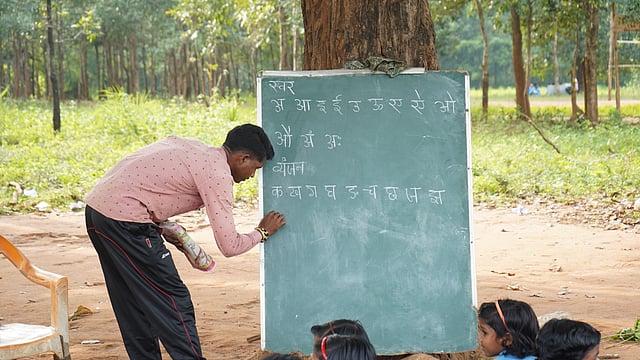 स्वर
अ आ इ ई उ ऊ ए ऐ ओ
औ अं अः
व्यंजन
क ख ग घ ङ च छ ज झ